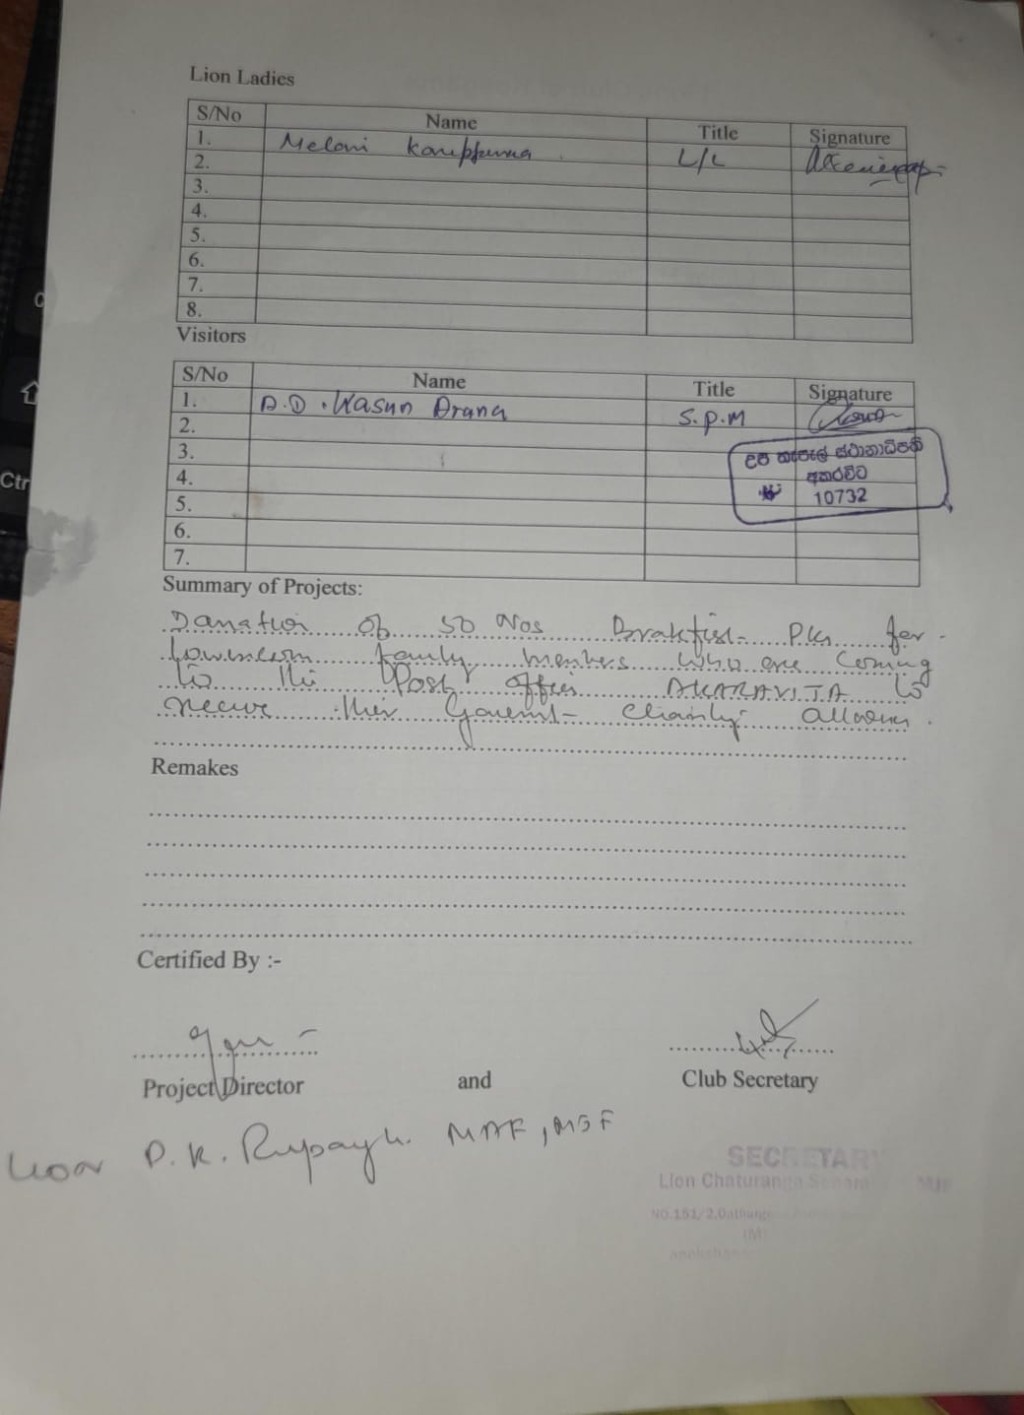 Lion Ladies
S/No Name Title Signature
1. Melani L/L
2.
3.
4.
5.
6.
7.
8.
Visitors
S/No Name Title Signature
1. D.D. Kasun Arana S.P.M
2.
3.
4.
5.
6.
7.
උප තැපැල් ස්ථානාධිපති
අකරවිට
10732
Summary of Projects:
Danation of 50 Nos Brakfist Pks for
family members who are coming
to the Post offies AKARAVITA to
receive their
Remakes
Certified By :-
Project Director and Club Secretary
Lion P.K. MAF, MJF
SECRETARY
Lion Chaturanga MJF
NO.151/2,